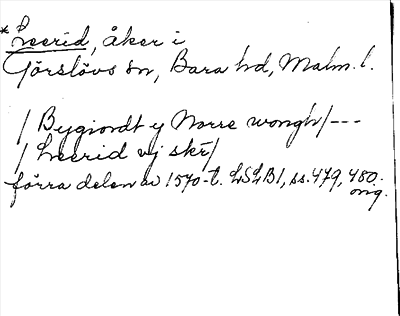 * Leerid, åker i
Görslövs sn, Bara hd, Malm. l.
/ Bygiondt y Norre wongh/---
/ Leerid vj skr/
förra delen av 1570-t. LSLB1, ss. 479, 480.
orig.